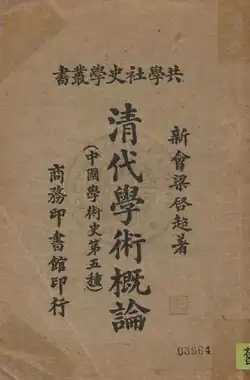 共學社史學叢書
新會梁啓超著
清代學術概論
(中國學術史第五種)
商務印書館印行
03964